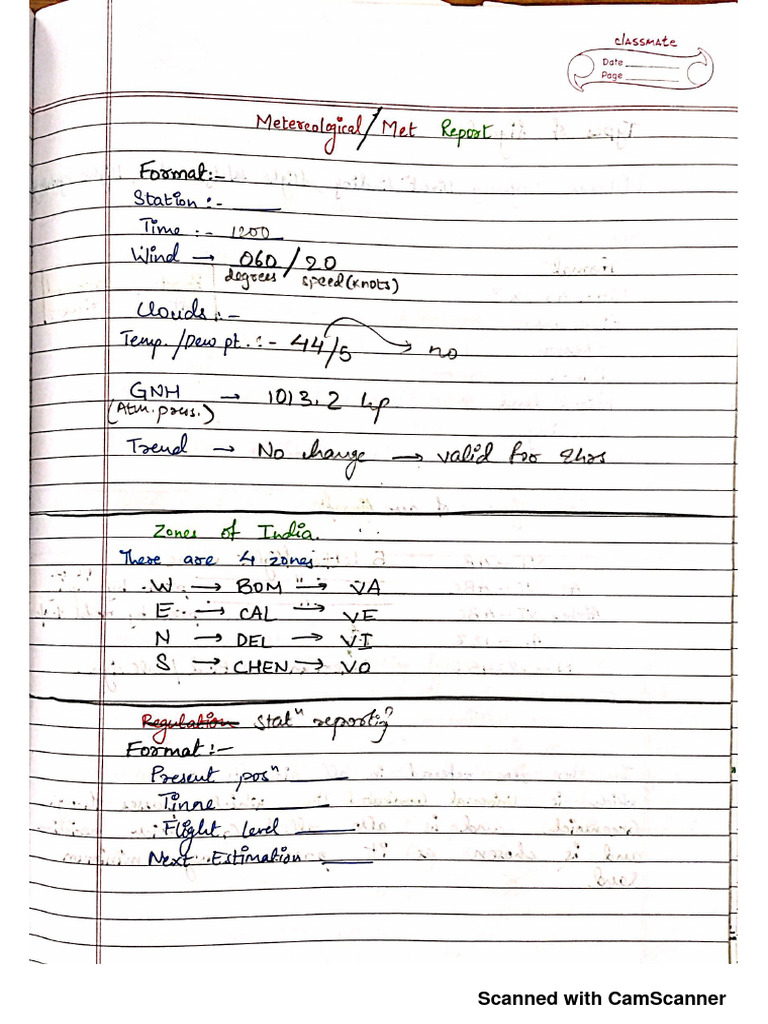 classmate
Date
Page
Metereological/Met Report
Format:-
Station :-
Time :- 1200
Wind → 060/20
degrees speed(knots)
Clouds :-
Temp./Dew pt. :- 44/5 → no
GNH → 1013.2 hp
(Atm. pres.)
Trend → No change → valid for 2hrs
Zones of India.
There are 4 zones
W → BOM → VA
E → CAL → VE
N → DEL → VI
S → CHEN → VO
Regulation statn reporting
Format :-
Present posn
Time
Flight level
Next Estimation
Scanned with CamScanner